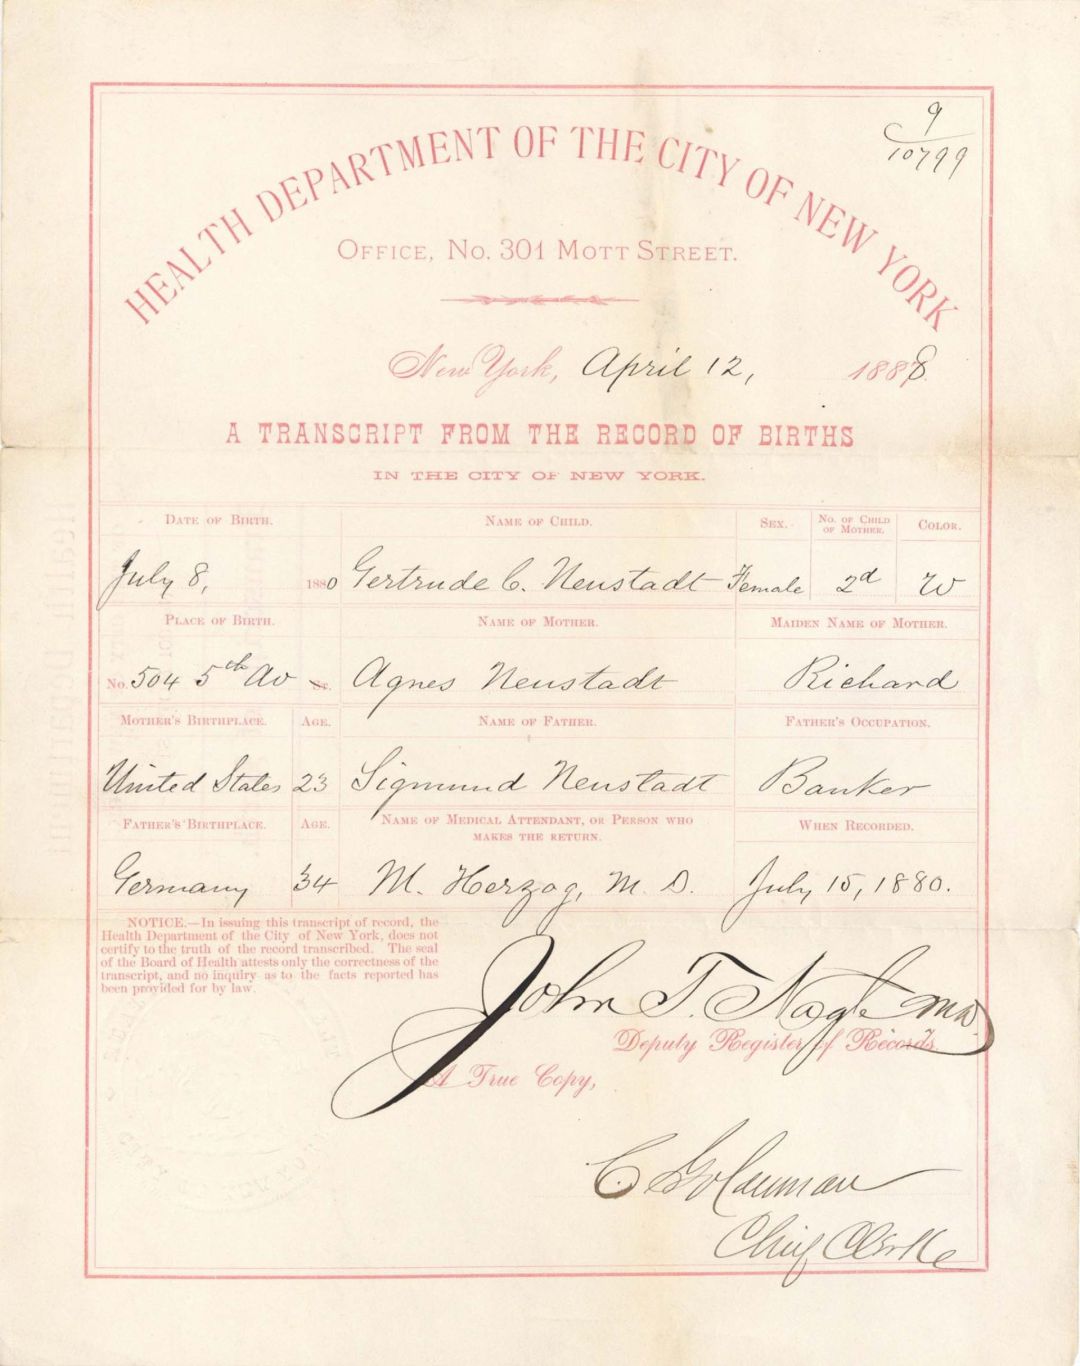 9
C 10799
HEALTH DEPARTMENT OF THE CITY OF NEW YORK
OFFICE, NO. 301 MOTT STREET.
New York, April 12, 1888.
A TRANSCRIPT FROM THE RECORD OF BIRTHS
IN THE CITY OF NEW YORK.
DATE OF BIRTH. NAME OF CHILD. SEX. NO. OF CHILD OF MOTHER. COLOR.
July 8, 1880 Gertrude C. Neustadt Female 2d W
PLACE OF BIRTH. NAME OF MOTHER. MAIDEN NAME OF MOTHER.
No. 504 5th Av St. Agnes Neustadt Richard
MOTHER'S BIRTHPLACE. AGE. NAME OF FATHER. FATHER'S OCCUPATION.
United States 23 Sigmund Neustadt Banker
FATHER'S BIRTHPLACE. AGE. NAME OF MEDICAL ATTENDANT, OR PERSON WHO MAKES THE RETURN. WHEN RECORDED.
Germany 34 M. Herzog, M. D. July 15, 1880.
NOTICE.—In issuing this transcript of record, the
Health Department of the City of New York, does not
certify to the truth of the record transcribed. The seal
of the Board of Health attests only the correctness of the
transcript, and no inquiry as to the facts reported has
been provided for by law.
John T. Nagle MD
Deputy Register of Records.
A True Copy,
C.
Chief Clerk